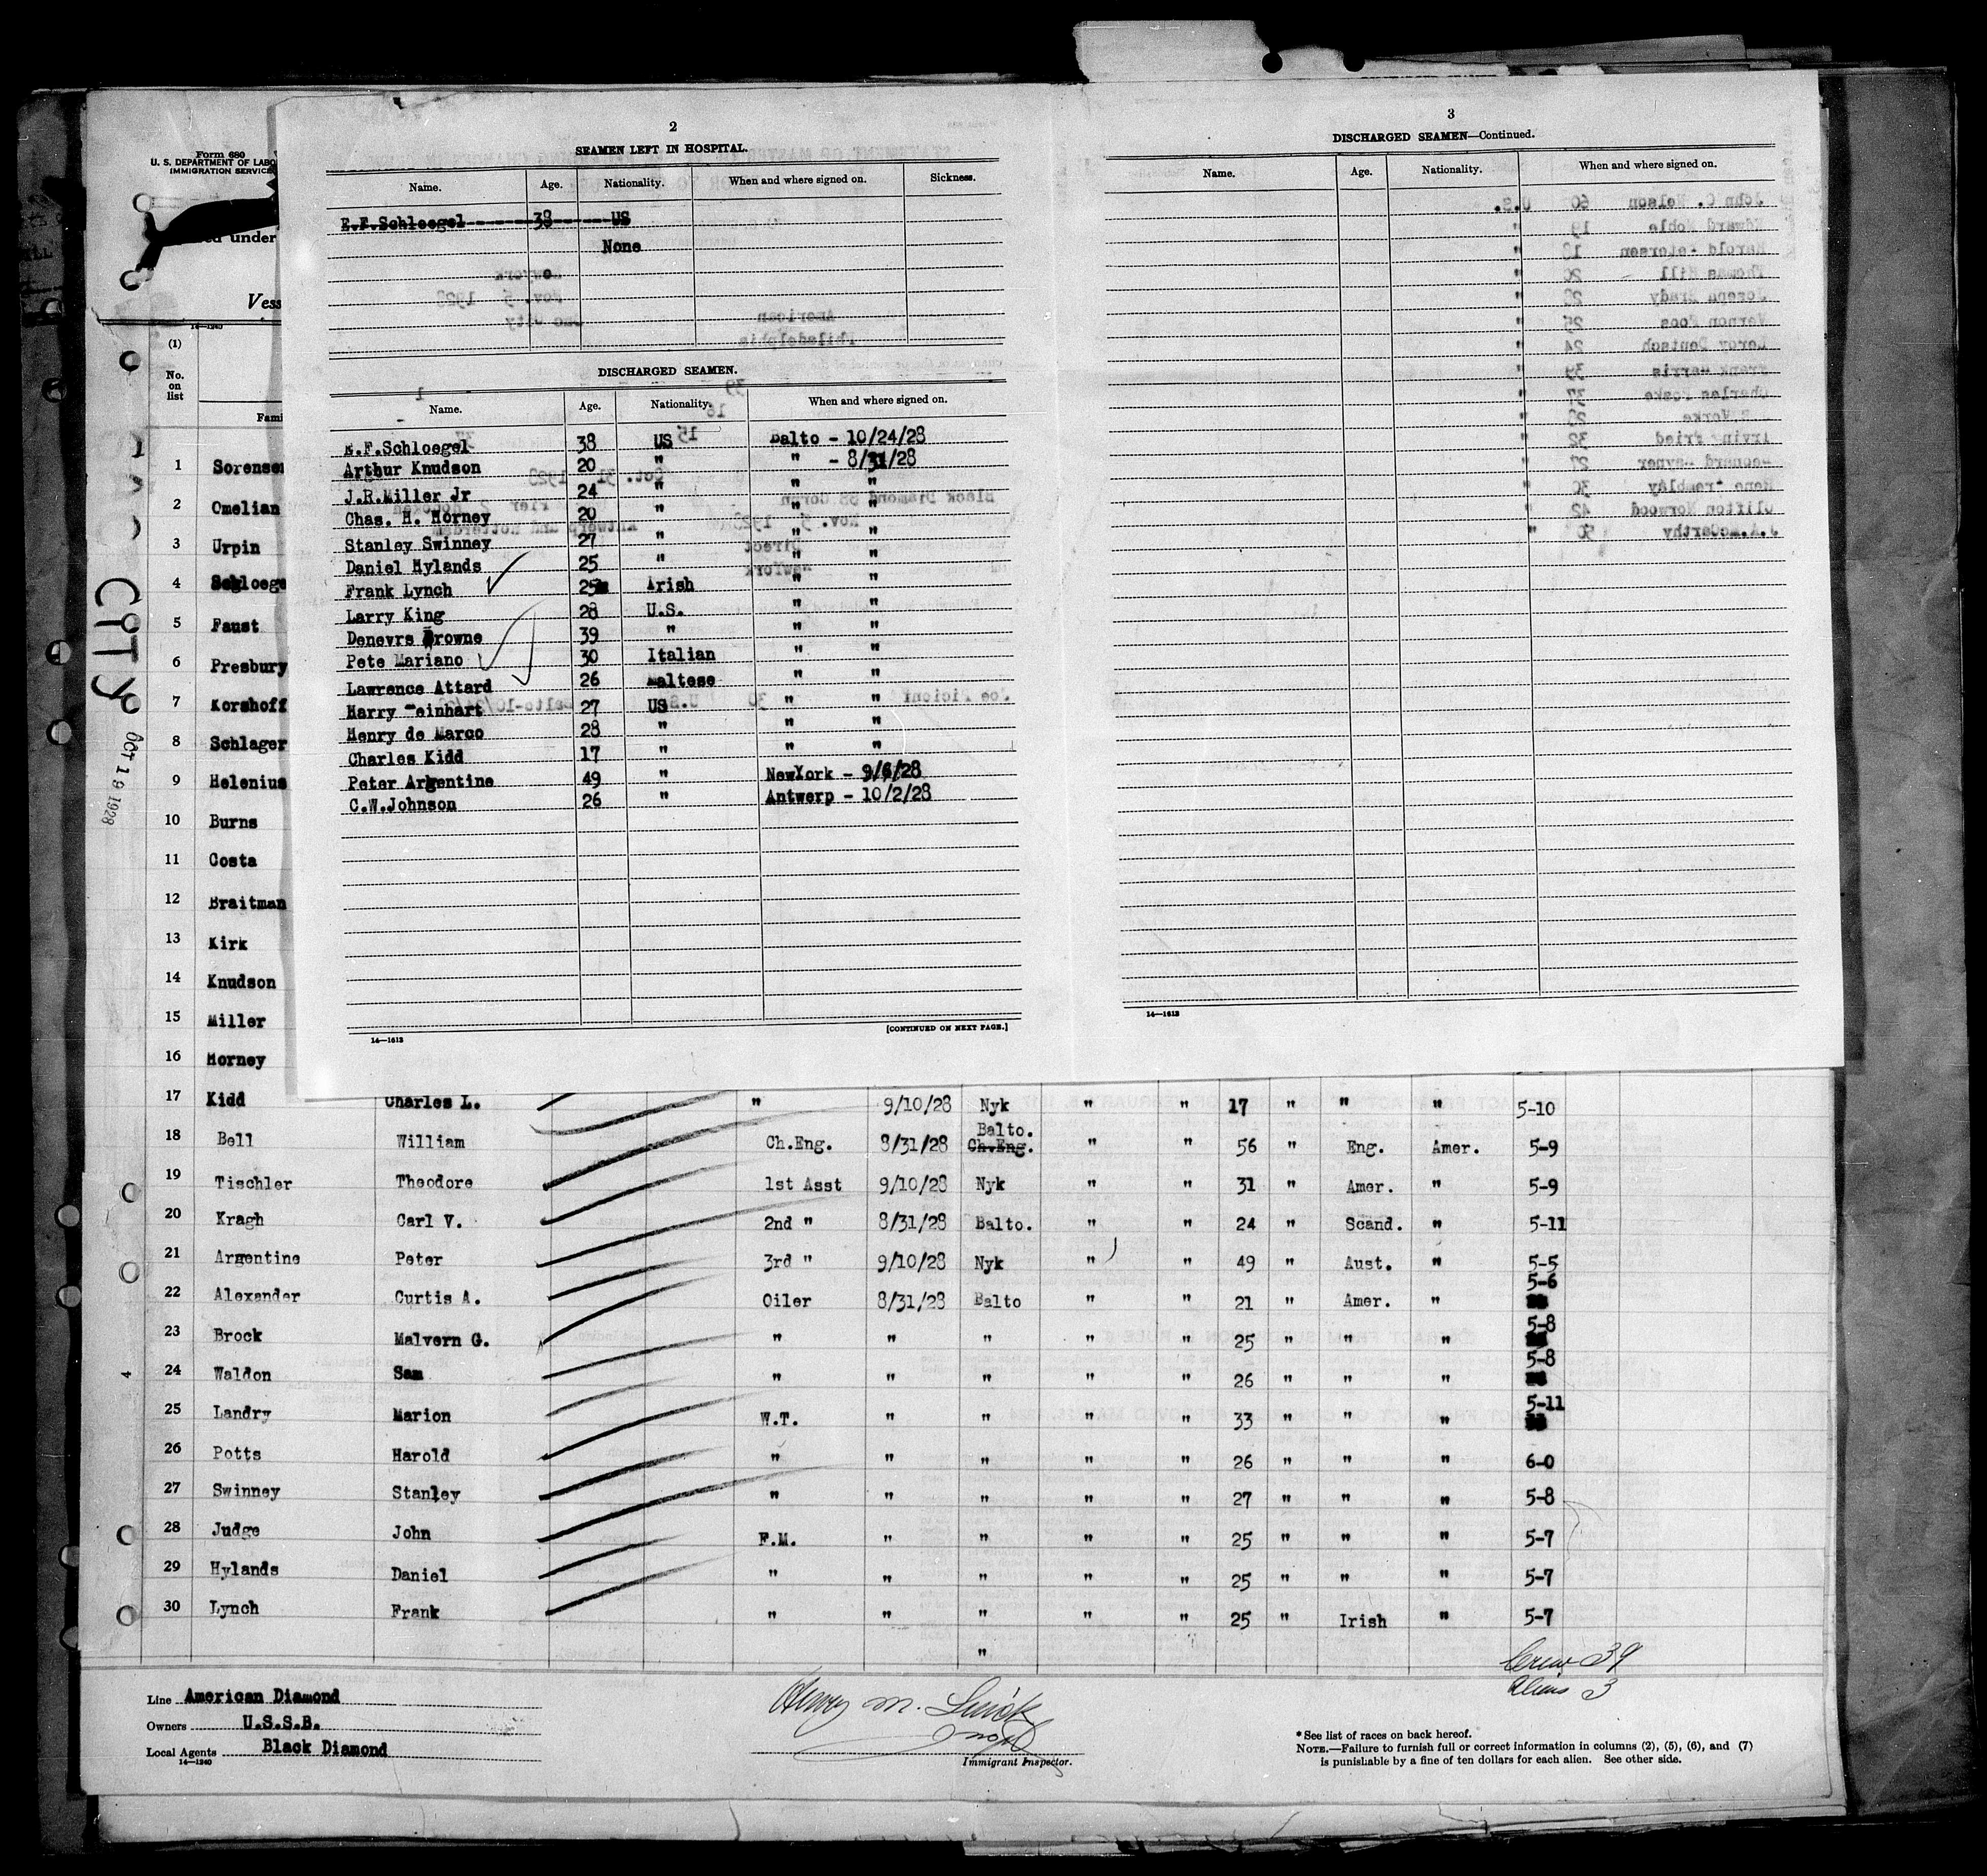 Form 680
U. S. DEPARTMENT OF LABO
IMMIGRATION SERVICE
ed under
Vess
14—1240
(1)
No.
on
list
Fami
CITY
OCT 19 1928
1 Sorensen
2 Omelian
3 Urpin
4 Schloege
5 Faust
6 Presbury
7 Korshoff
8 Schlager
9 Helenius
10 Burns
11 Costa
12 Braitman
13 Kirk
14 Knudson
15 Miller
16 Horney
2
SEAMEN LEFT IN HOSPITAL.
Name. Age. Nationality. When and where signed on. Sickness.
E.F.Schloegel 38 US
None
DISCHARGED SEAMEN.
Name. Age. Nationality. When and where signed on.
E.F.Schloegel 38 US Balto - 10/24/28
Arthur Knudson 20 " " - 8/31/28
J.R.Miller Jr 24 " " "
Chas. H. Horney 20 " " "
Stanley Swinney 27 " " "
Daniel Hylands 25 " " "
Frank Lynch 25 Irish " "
Larry King 28 U.S. " "
Denevrs Browne 39 " " "
Pete Mariano 30 Italian " "
Lawrence Attard 26 Maltese " "
Harry einhart 27 US " "
Henry de Marco 28 " " "
Charles Kidd 17 " " "
Peter Argentine 49 " NewYork - 9/6/28
C.W.Johnson 26 " Antwerp - 10/2/28
[CONTINUED ON NEXT PAGE.]
14—1613
3
DISCHARGED SEAMEN—Continued.
Name. Age. Nationality. When and where signed on.
John C. Nelson 60 U.S.
Edward Noble 19 "
Harold Petersen 18 "
Thomas Hill 20 "
Joseph Brady 28 "
Vernon Foos 25 "
Leroy Deutsch 24 "
Frank Harris 39 "
Irving Fried 32 "
Clifton Norwood 42 "
J.A.McCarthy 50 "
14—1613
17 Kidd Charles L. " 9/10/28 Nyk " " 17 " " " 5-10
18 Bell William Ch.Eng. 8/31/28 Balto. Ch.Eng. " " 56 " Eng. Amer. 5-9
19 Tischler Theodore 1st Asst 9/10/28 Nyk " " 31 " Amer. " 5-9
20 Kragh Carl V. 2nd " 8/31/28 Balto. " " 24 " Scand. " 5-11
21 Argentine Peter 3rd " 9/10/28 Nyk " " 49 " Aust. " 5-5
22 Alexander Curtis A. Oiler 8/31/28 Balto " " 21 " Amer. " 5-6
23 Brock Malvern G. " " " " " 25 " " " 5-8
24 Waldon Sam " " " " " 26 " " " 5-8
25 Landry Marion W.T. " " " " 33 " " " 5-11
26 Potts Harold " " " " " 26 " " " 6-0
27 Swinney Stanley " " " " " 27 " " " 5-8
28 Judge John F.M. " " " " 25 " " " 5-7
29 Hylands Daniel " " " " " 25 " " " 5-7
30 Lynch Frank " " " " " 25 " Irish " 5-7
"
Crew 39
Aliens 3
Line American Diamond
Owners U.S.S.B.
Local Agents Black Diamond
14—1240
Henry M.
Immigrant Inspector.
*See list of races on back hereof.
NOTE.—Failure to furnish full or correct information in columns (2), (5), (6), and (7)
is punishable by a fine of ten dollars for each alien. See other side.